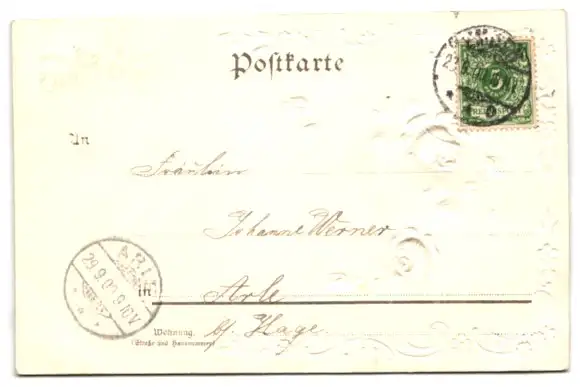 Postkarte
An
Fräulein
Johanne Werner
in Arle
Wohnung. b/ Hage.
(Straße und Hausnummer)
5
29.9.00.9-10V